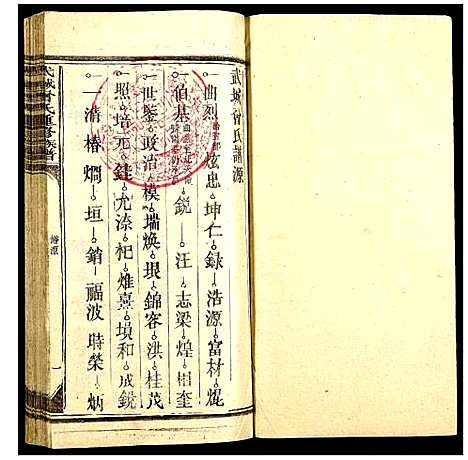 武城曾氏譜源
一曲烈 炫忠 坤仁 録 浩源 富材 焜
一伯基 鋭 汪 志梁 煌 相奎
一世鑒 政治 模 瑞煥 垠 錦容 洪 桂茂
一照 培元 銈 尤 杞 熹 塤和 成鋭
一清椿 爛 垣 銷 福波 時榮 炳
武城曾氏重修族譜
譜源
一